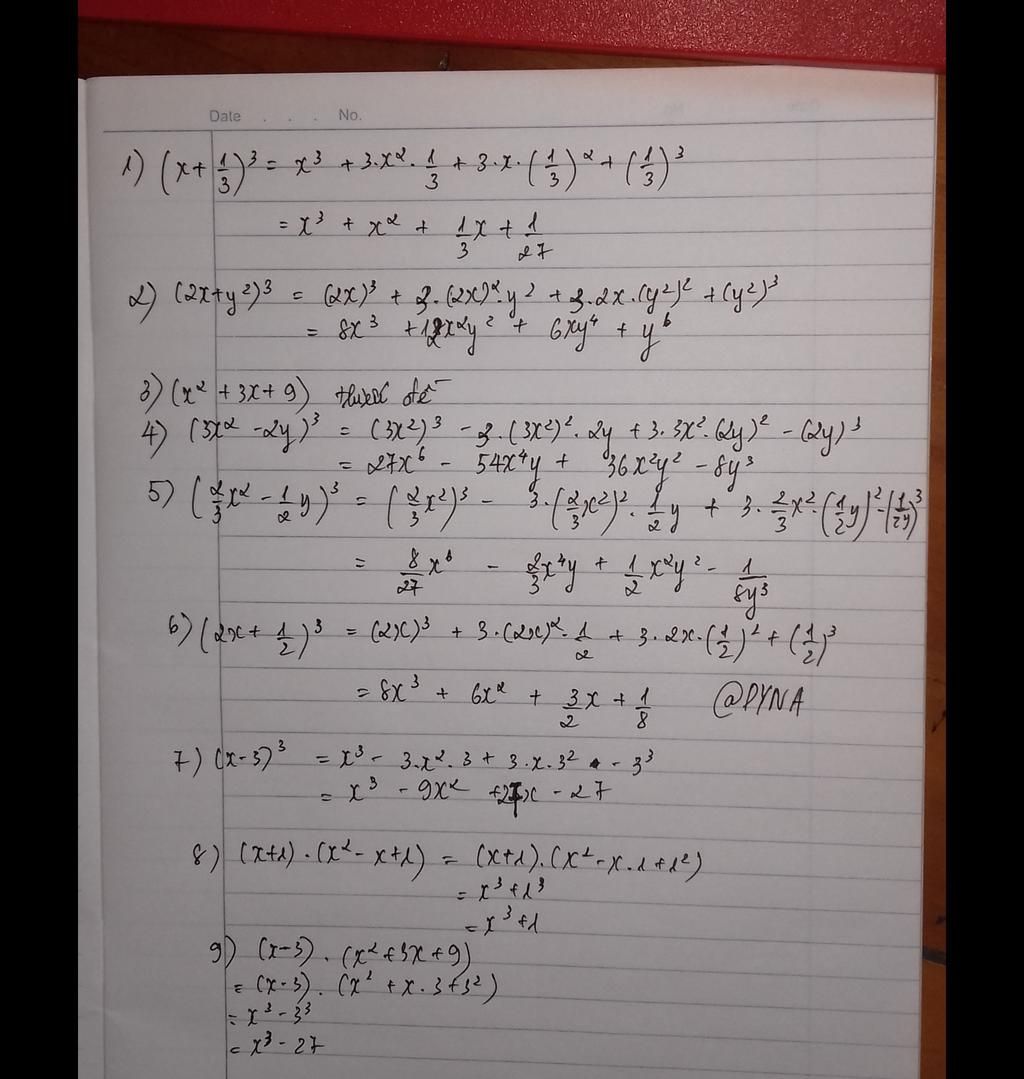 Date . . . No.
1) (x + 1/3)³ = x³ + 3.x².1/3 + 3.x.(1/3)² + (1/3)³
= x³ + x² + 1/3x + 1/27
2) (2x+y²)³ = (2x)³ + 3.(2x)².y² + 3.2x.(y²)² + (y²)³
= 8x³ + 12x²y² + 6xy⁴ + y⁶
3) (x² + 3x + 9) thiếu đề
4) (3x² - 2y)³ = (3x²)³ - 3.(3x²)².2y + 3.3x².(2y)² - (2y)³
= 27x⁶ - 54x⁴y + 36x²y² - 8y³
5) (2/3x² - 1/2y)³ = (2/3x²)³ - 3.(2/3x²)².1/2y + 3.2/3x².(1/2y)² - (1/2y)³
= 8/27x⁶ - 2/3x⁴y + 1/2x²y² - 1/8y³
6) (2x + 1/2)³ = (2x)³ + 3.(2x)².1/2 + 3.2x.(1/2)² + (1/2)³
= 8x³ + 6x² + 3/2x + 1/8 @PYNA
7) (x-3)³ = x³ - 3.x².3 + 3.x.3² - 3³
= x³ - 9x² + 27x - 27
8) (x+1).(x² - x+1) = (x+1).(x² - x.1 + 1²)
= x³ + 1³
= x³ + 1
9) (x-3).(x² + 3x + 9)
= (x-3).(x² + x.3 + 3²)
= x³ - 3³
= x³ - 27